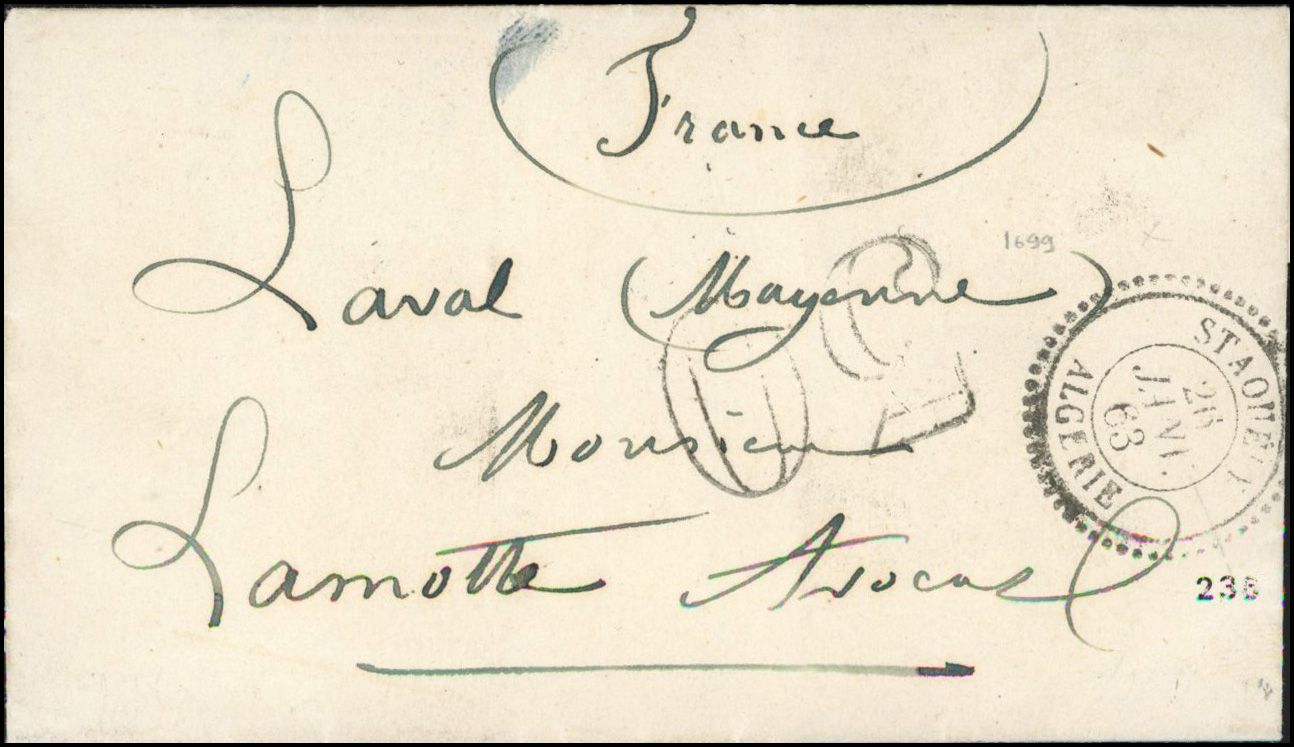 France
1699
Laval (Mayenne)
Monsieur
Lamotte Avocat
STAOUELI
26
JANV.
63
ALGERIE
238